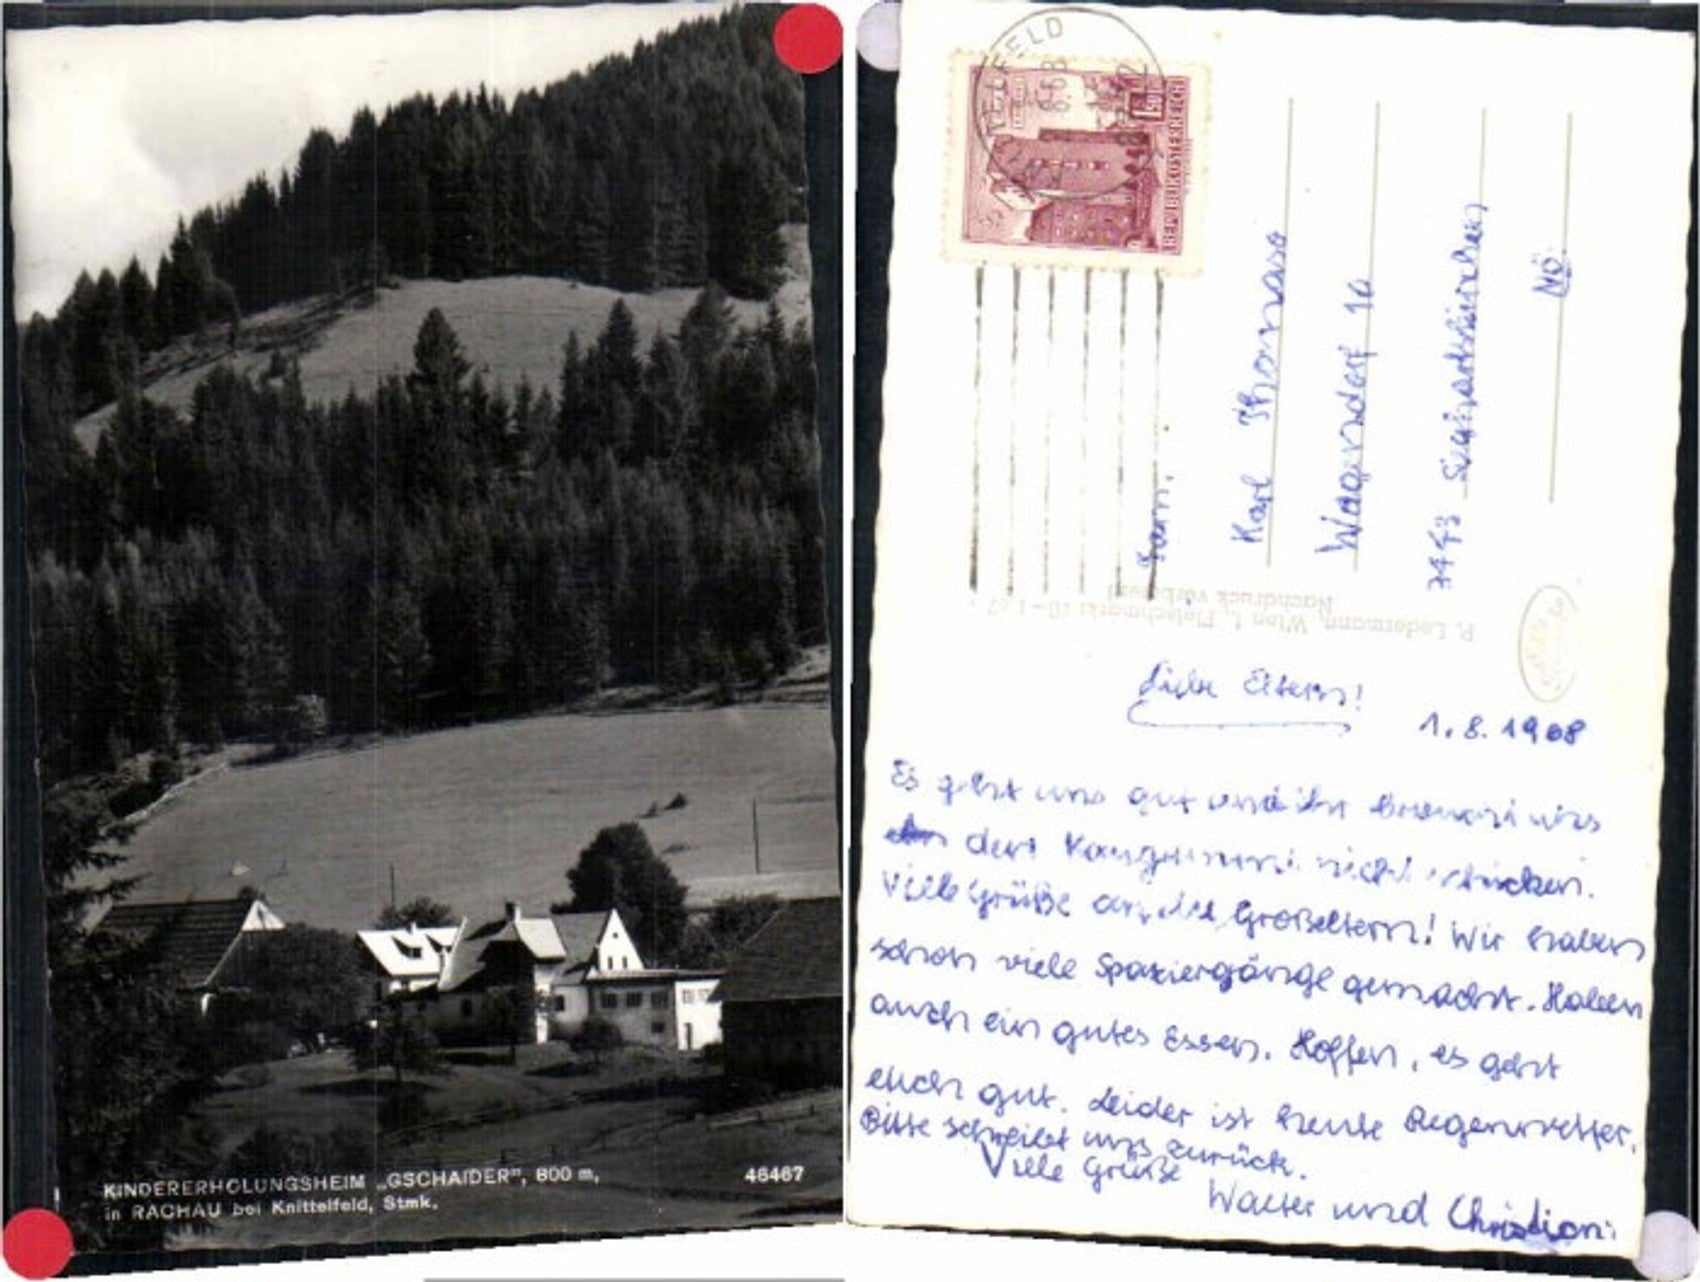 KINDERERHOLUNGSHEIM „GSCHAIDER“, 800 m,
in RACHAU bei Knittelfeld, Stmk.
46467
REPUBLIK ÖSTERREICH
Fam.
Karl
Wagendorf 10
NÖ.
P. Ledermann, Wien I, Fleischmarkt
Nachdruck verboten
Liebe Eltern!
1. 8. 1968
Es geht uns gut und ihr braucht uns
den nicht schicken.
Viele Grüße an die Großeltern! Wir haben
schon viele Spaziergänge gemacht. Haben
auch ein gutes Essen. Hoffen, es geht
euch gut. Leider ist heute Regenwetter.
Bitte schreibt uns zurück.
Viele Grüße
Walter und Christian